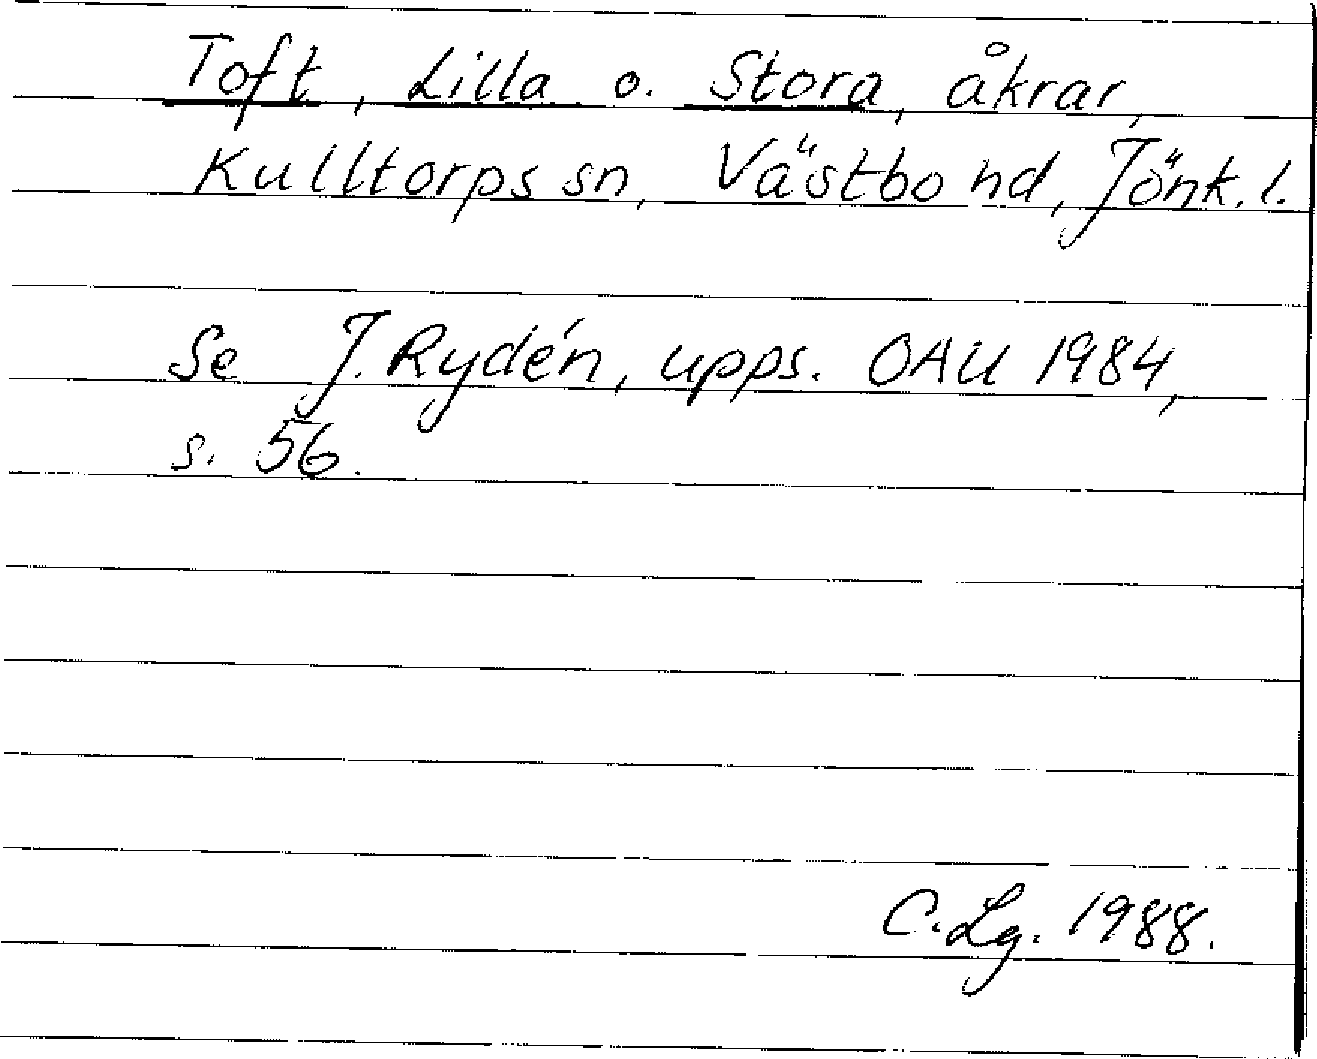 Toft, Lilla o. Stora, åkrar,
Kulltorps sn, Västbo hd, Jönk. l.
Se J. Rydén, upps. OAU 1984,
s. 56.
C. Lg. 1988.